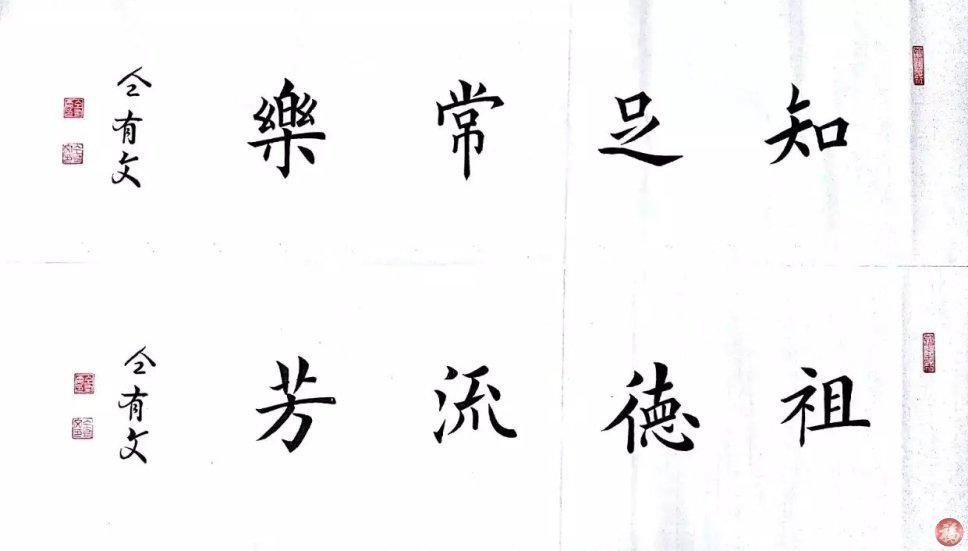 知足常樂
仝有文
祖德流芳
仝有文
福